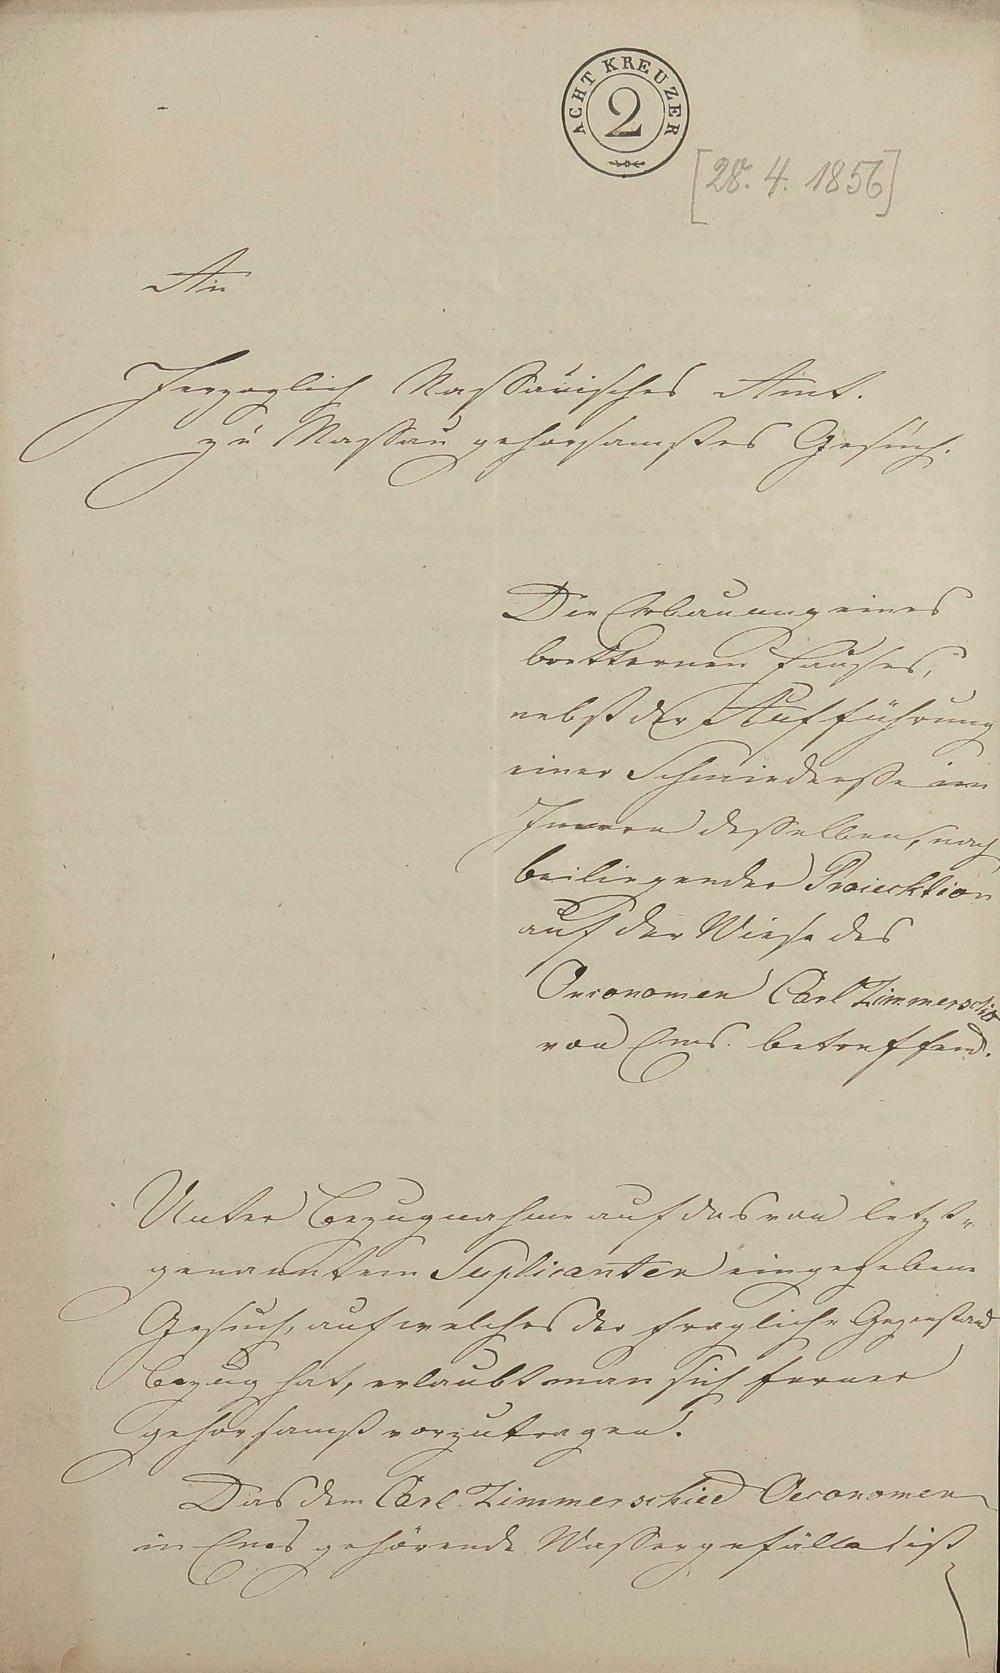 ACHT KREUZER
2
[28. 4. 1856]
An
Herzoglich Nassauisches Amt.
zu Nassau gehorsamstes Gesuch.
Die Erbauung eines
bretternen Hauses,
nebst der Aufführung
einer Schmiedeesse im
Innern desselben, nach
beiliegender Proiecktion
auf der Wiese des
Oeconomen Carl Zimmerschied
von Ems. betreffend.
Unter Bezugnahme auf das von letzt-
genanntem Suplicanten eingegebene
Gesuch, auf welches der fragliche Gegenstand
Bezug hat, erlaubt man sich ferner
gehorsamst vorzutragen:
Das dem Carl Zimmerschied Oeconomen
in Ems gehörende Wassergefälle ist